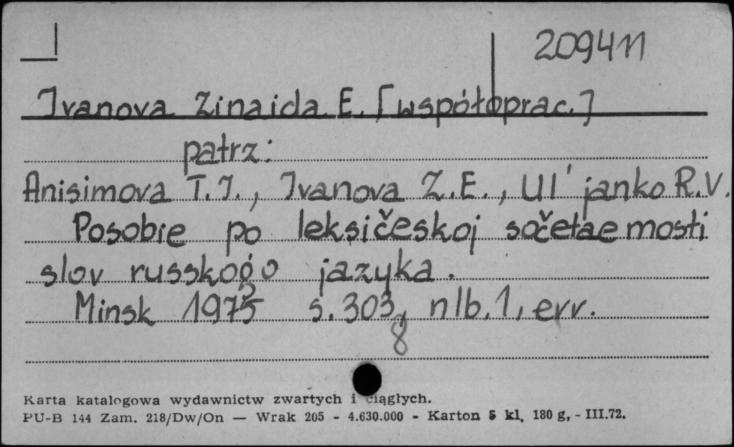 209411
Ivanova Zinaida E. [współoprac.]
patrz:
Anisimova T.I., Ivanova Z.E., Ul'janko R.V.
Posobie po leksičeskoj sočetaemosti
slov russkogo jazyka.
Minsk 1975 s. 303, nlb. 1, err.
8
Karta katalogowa wydawnictw zwartych i ciągłych.
PU-B 144 Zam. 218/Dw/On — Wrak 205 - 4.630.000 - Karton 5 kl. 180 g, - III.72.